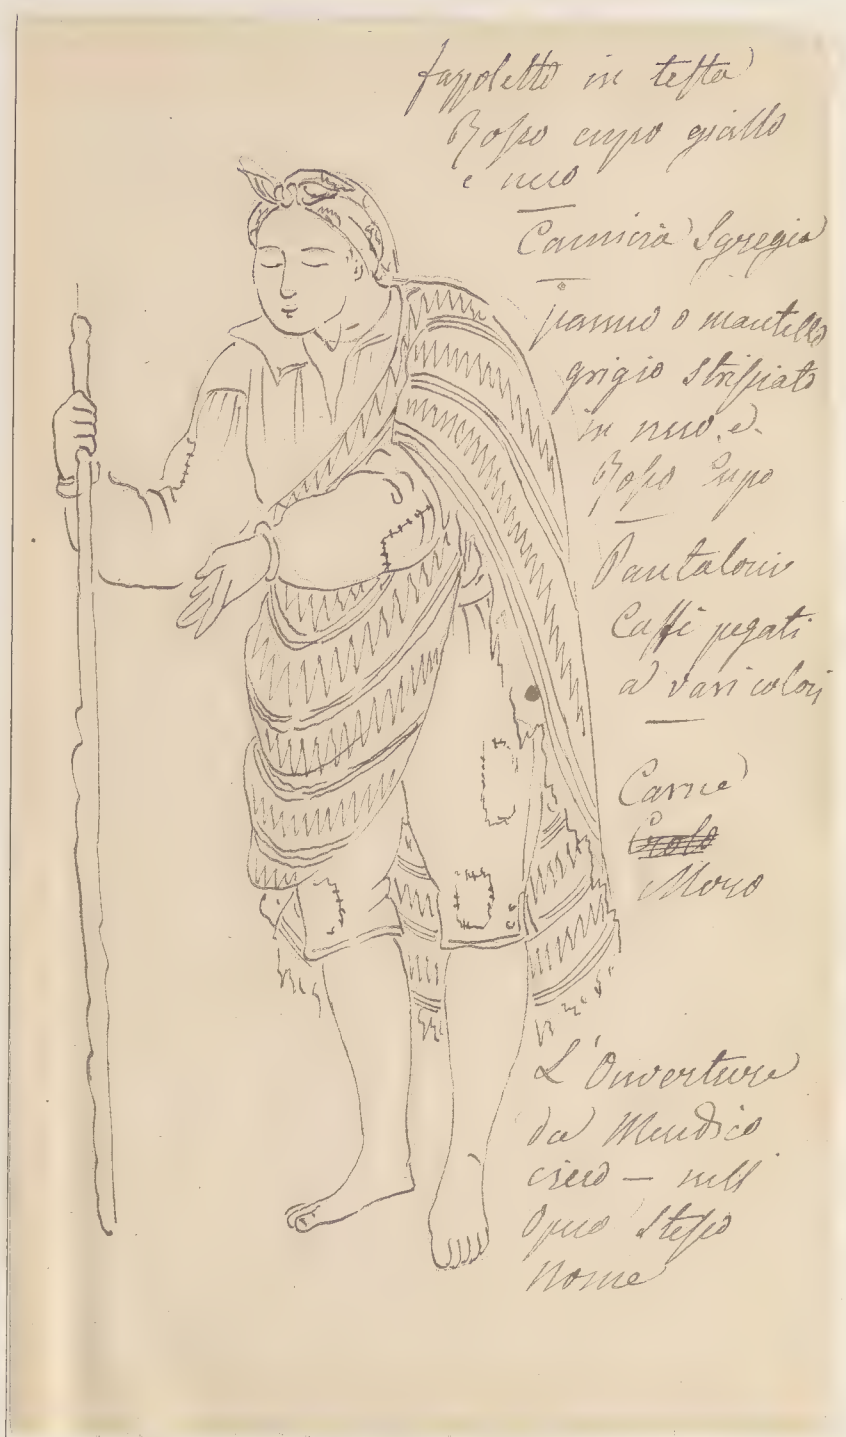 fazzoletto in testa
Rosso cupo giallo
e nero
Camicia Sgregia
panno o mantello
grigio strisciato
in nero e
Rosso Cupo
Pantaloni
Caffè pezati
a vari colori
Carne
Moro
L'Ouverture
da Mendico
cieco — nell
Opera Stesso
Nome